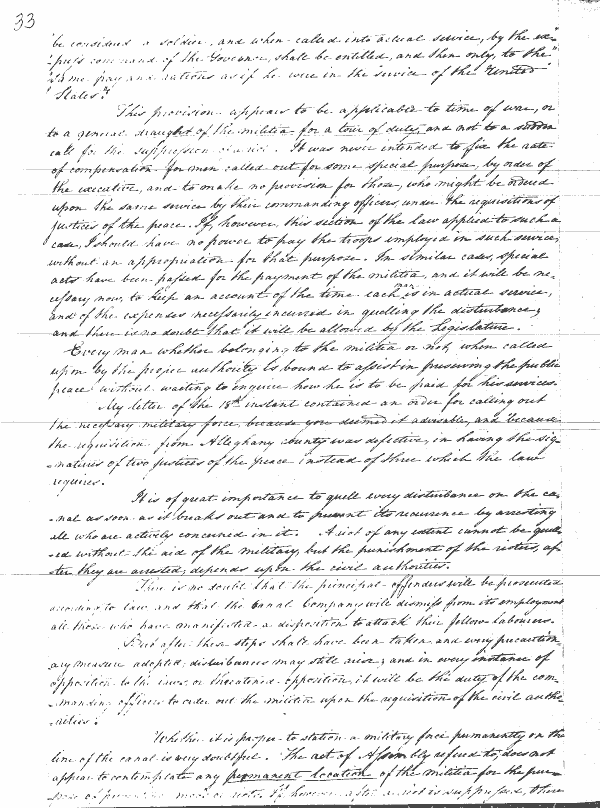 33
"be considered a soldier, and when called into actual service, by the ex"
"press command of the Governor, shall be entitled, and then only, to the"
"same pay and rations as if he were in the service of the United
"States".
This provision appears to be applicable to time of war, or
to a general draught of the militia for a tour of duty, and not to a sudden
call for the suppression of a riot. It was never intended to fix the rate
of compensation for men called out for some special purpose, by order of
the executive, and to make no provision for those, who might be ordered
upon the same service by their commanding officers under the requisitions of
justices of the peace. If, however, this section of the law applied to such a
case, I should have no power to pay the troops employed in such service,
without an appropriation for that purpose. In similar cases, special
acts have been passed for the payment of the militia, and it will be ne-
cessary now, to keep an account of the time each man is in actual service,
and of the expenses necessarily incurred in quelling the disturbance;
and there is no doubt that it will be allowed by the Legislature.
Every man whether belonging to the militia or not, when called
upon by the proper authority is bound to assist in preserving the public
peace without waiting to enquire how he is to be paid for his services.
My letter of the 18th instant contained an order for calling out
the necessary military force, because you deemed it advisable, and because
the requisition from Alleghany county was defective, in having the sig-
-natures of two justices of the peace instead of three which the law
requires.
It is of great importance to quell every disturbance on the ca-
-nal as soon as it breaks out and to prevent its recurrence by arresting
all who are actively concerned in it. A riot of any extent cannot be quell-
-ed without the aid of the military, but the punishment of the rioters, af-
-ter they are arrested, depends upon the civil authorities.
There is no doubt that the principal offenders will be prosecuted
according to law and that the Canal Company will dismiss from its employment
all those who have manifested a disposition to attack their fellow labourers.
But after these steps shall have been taken and every precaution-
ary measure adopted, disturbances may still arise; and in every instance of
opposition to the laws or threatened opposition, it will be the duty of the com-
-manding officer to order out the militia upon the requisition of the civil autho-
rities.
Whether it is proper to station a military force permanently on the
line of the canal is very doubtful. The act of Assembly refered to, does not
appear to contemplate any permanent location of the militia for the pur-
pose of If however after a riot is suppressed, there